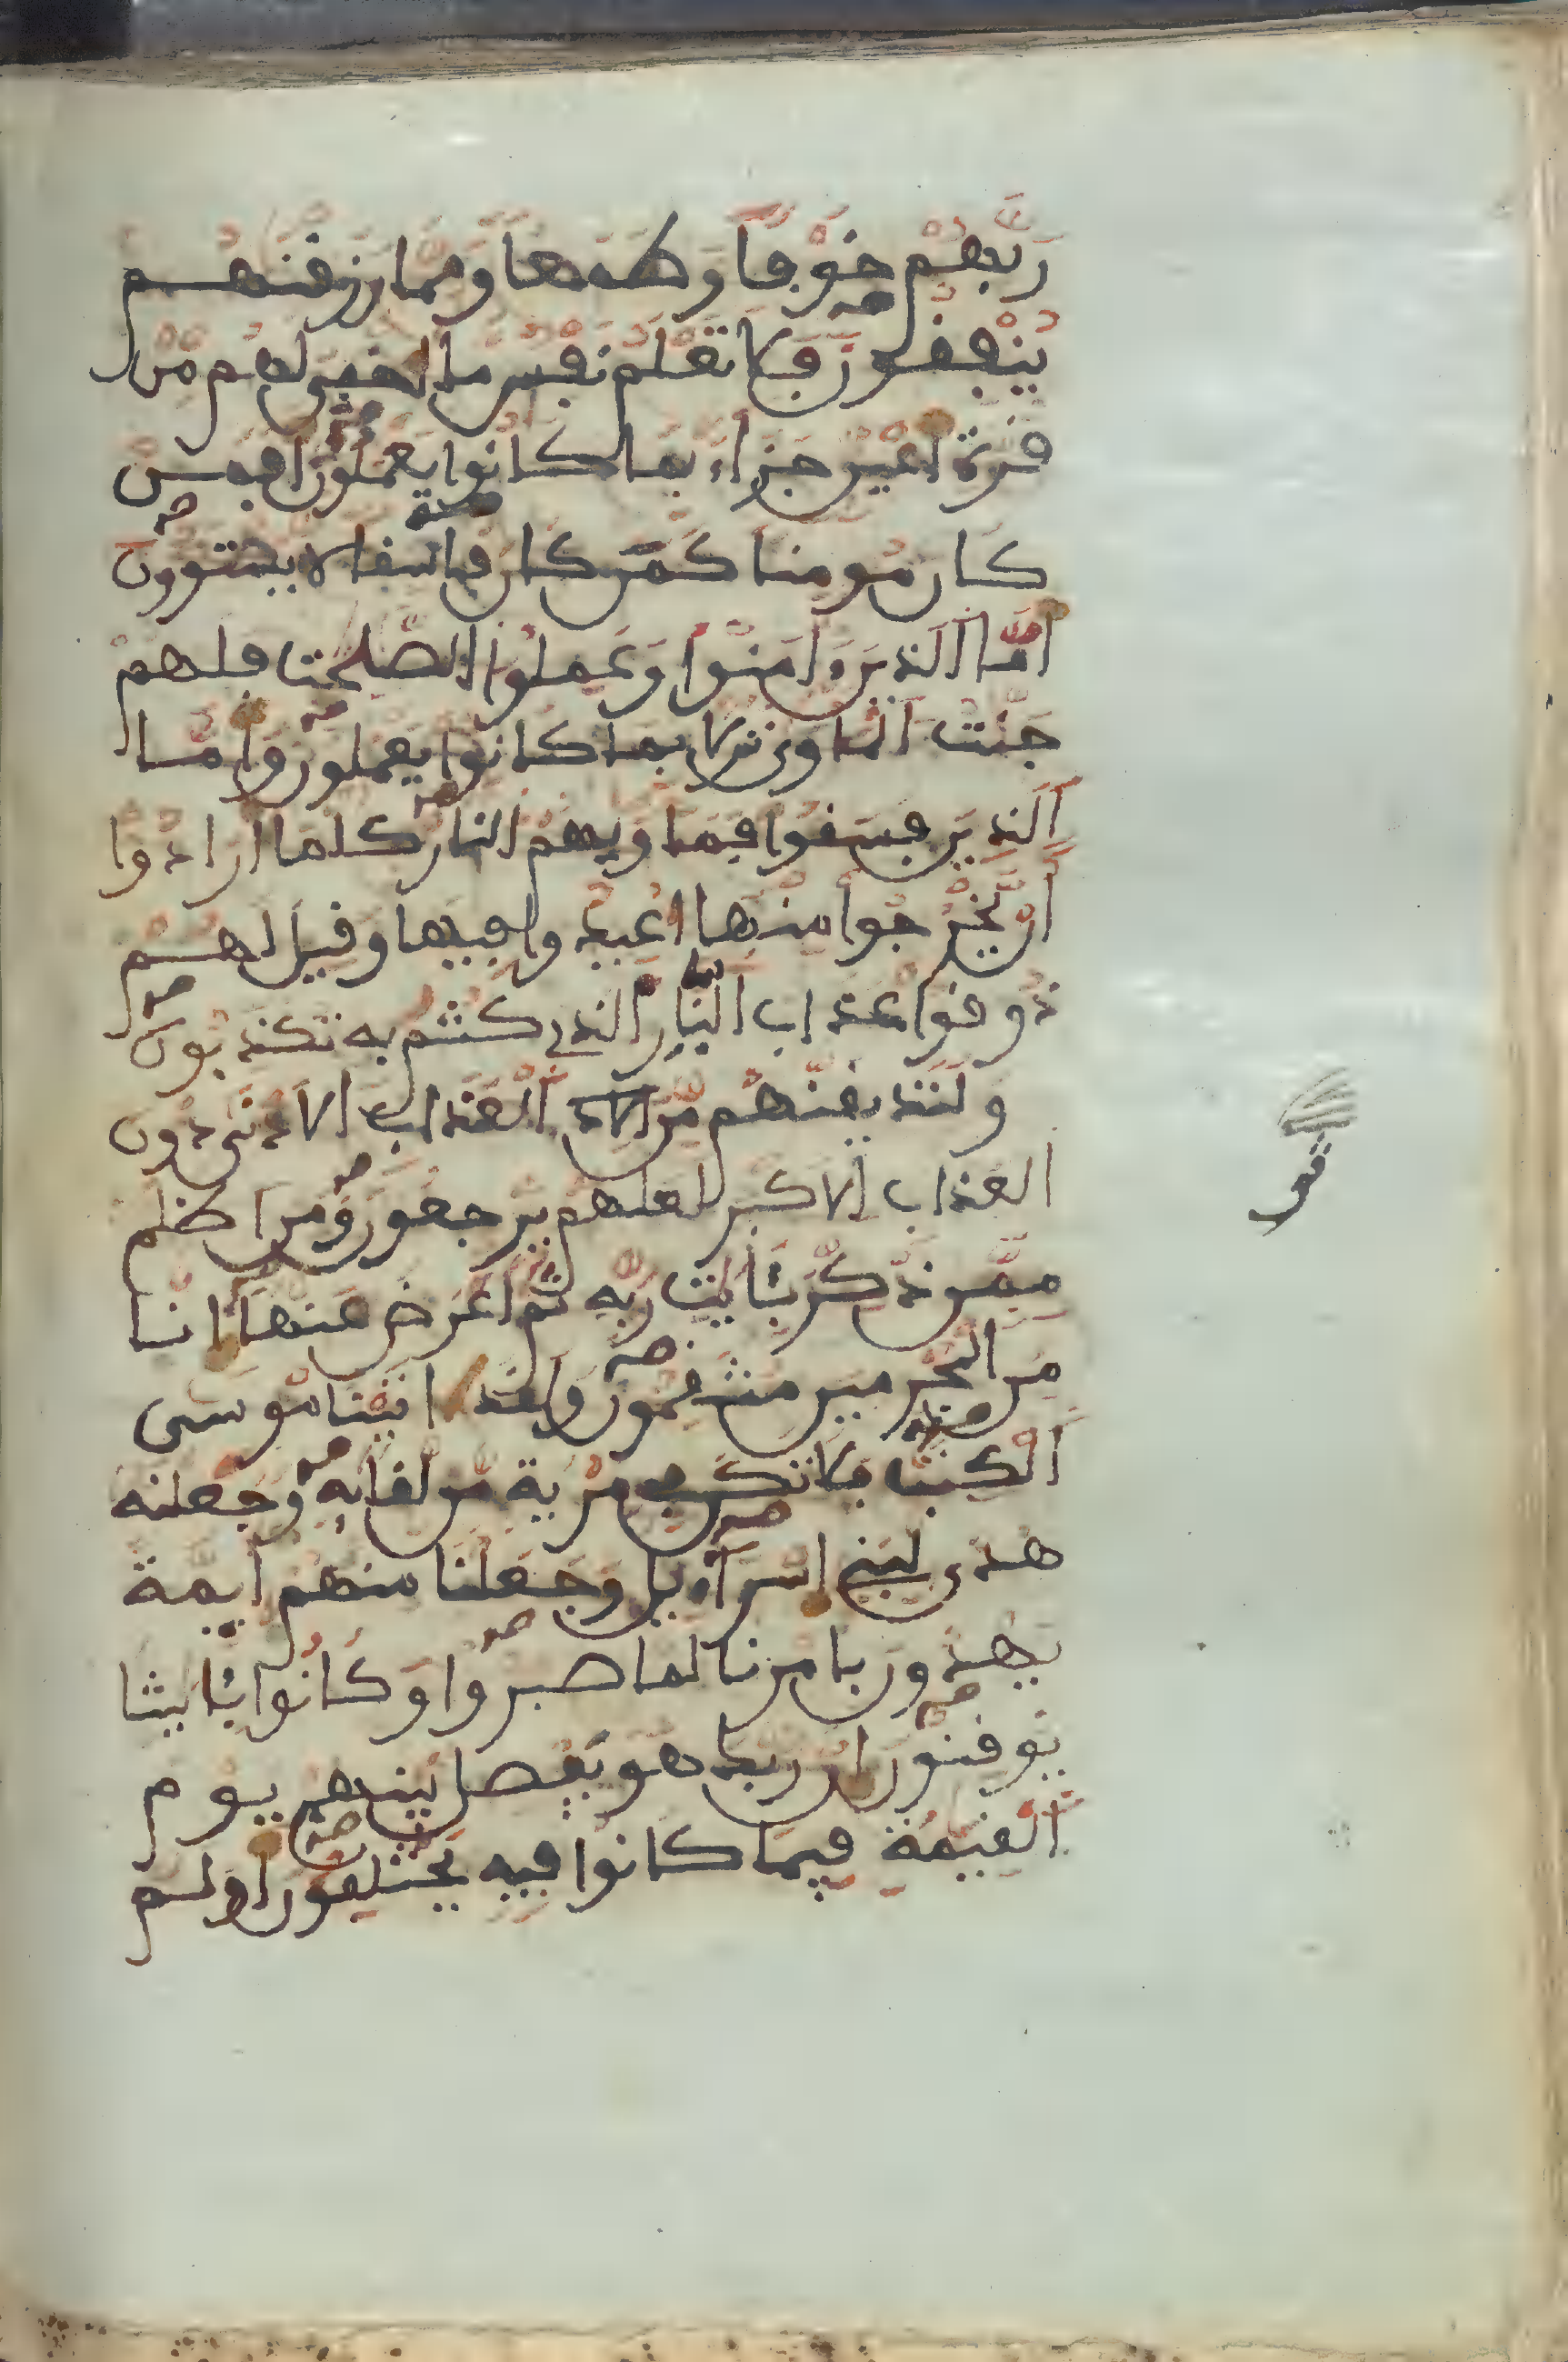 ربهم خوفا وطمعا ومما رزفنهم
ينففون فلا تعلم نفس ما اخفى لهم من
فرة اعين جزاء بما كانوا يعملون افمن
كان مومنا كمن كان فاسفا لا يستوون
اما الذين ءامنوا وعملوا الصلحت فلهم
جنت الماوى نزلا بما كانوا يعملون واما
الذين فسفوا فماويهم النار كلما ارادوا
ان يخرجوا منها اعيدوا فيها وفيل لهم
ذوفوا عذاب النار الذي كنتم به تكذبون
ولنذيفنهم من العذاب الادنى دون
العذاب الاكبر لعلهم يرجعون ومن اظلم
ممن ذكر بئايت ربه ثم اعرض عنها انا
من المجرمين منتفمون ولفد اتينا موسى
الكتب فلا تكن في مرية من لفايه وجعلنه
هدى لبني اسراءيل وجعلنا منهم ايمة
يهدون بامرنا لما صبروا وكانوا بئايتنا
يوفنون ان ربك هو يفصل بينهم يوم
الفيمة فيما كانوا فيه يختلفون اولم